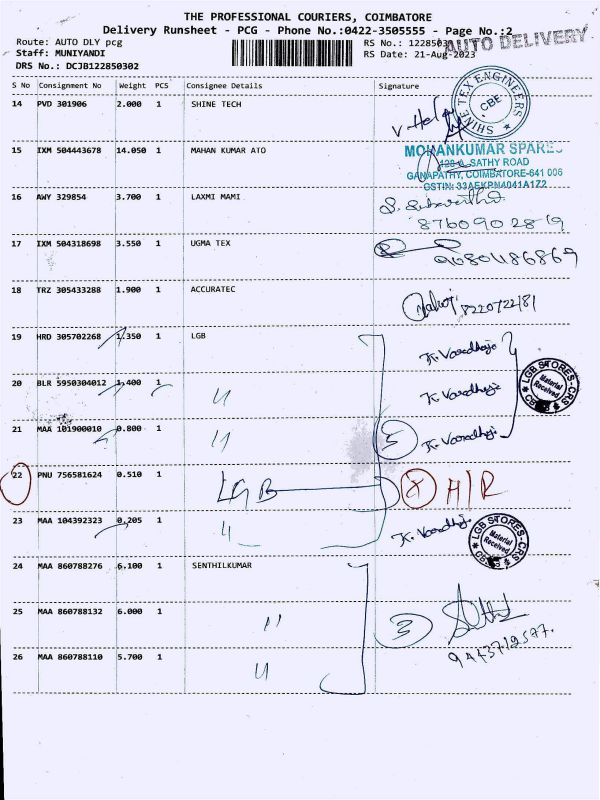 THE PROFESSIONAL COURIERS, COIMBATORE
Delivery Runsheet - PCG - Phone No.:0422-3505555 - Page No.:2
Route: AUTO DLY pcg
RS No.: 1228503
AUTO DELIVERY
Staff: MUNIYANDI
RS Date: 21-Aug-2023
DRS No.: DCJB122850302
S No Consignment No Weight PCS Consignee Details Signature
14 PVD 301906 2.000 1 SHINE TECH
SHINE TEX ENGINEERS
CBE
15 IXM 504443678 14.050 1 MAHAN KUMAR ATO
MOHANKUMAR SPARES
SATHY ROAD
GANAPATHY, COIMBATORE-641 006
GSTIN: 33AEKPN4041A1Z2
16 AWY 329854 3.700 1 LAXMI MAMI
8760902819
17 IXM 504318698 3.550 1 UGMA TEX
9080486869
18 TRZ 305433288 1.900 1 ACCURATEC
8220722481
19 HRD 305702268 1.350 1 LGB
K. Varadhaji
LGB STORES-CRS
Material
Received
CBE
20 BLR 5950304012 1.400 1 "
K. Varadhaji
21 MAA 101900010 0.800 1 "
5
K. Varadhaji
22 PNU 756581624 0.510 1 LGB
X H/R
23 MAA 104392323 0.205 1 "
K. Varadhaji
LGB STORES-CRS
Material
Received
24 MAA 860788276 6.100 1 SENTHILKUMAR
25 MAA 860788132 6.000 1 "
3
9443712577.
26 MAA 860788110 5.700 1 "